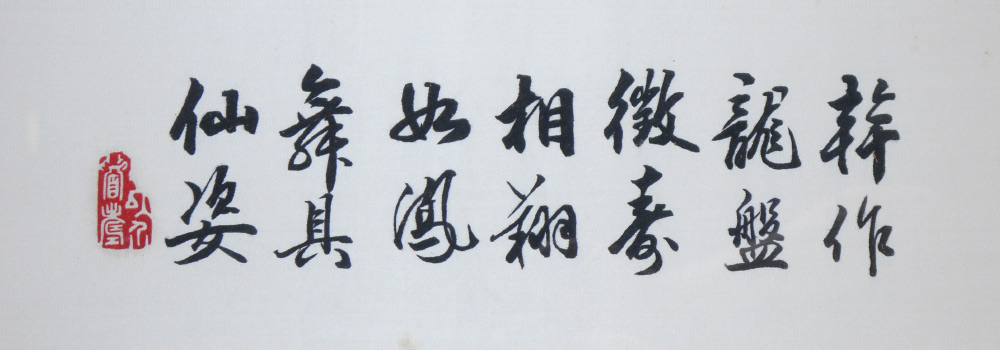 幹作
龍盤
徵壽
相翔
如鳳
舞具
仙姿